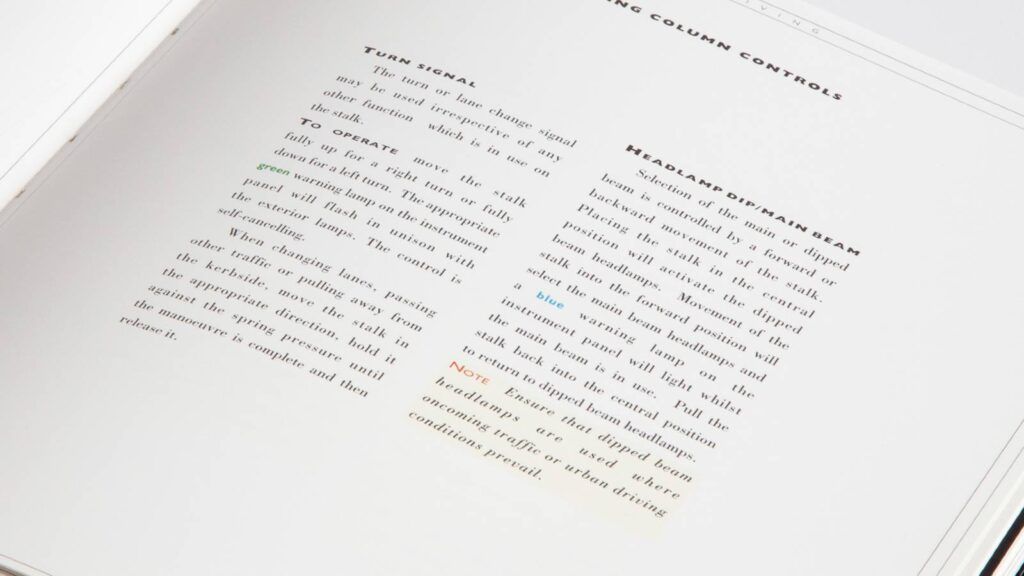 IVING
ING COLUMN CONTROLS
TURN SIGNAL
The turn or lane change signal
may be used irrespective of any
other function which is in use on
the stalk.
TO OPERATE move the stalk
fully up for a right turn or fully
down for a left turn. The appropriate
green warning lamp on the instrument
panel will flash in unison with
the exterior lamps. The control is
self-cancelling.
When changing lanes, passing
other traffic or pulling away from
the kerbside, move the stalk in
the appropriate direction, hold it
against the spring pressure until
the manoeuvre is complete and then
release it.
HEADLAMP DIP/MAIN BEAM
Selection of the main or dipped
beam is controlled by a forward or
backward movement of the stalk.
Placing the stalk in the central
position will activate the dipped
beam headlamps. Movement of the
stalk into the forward position will
select the main beam headlamps and
a blue warning lamp on the
instrument panel will light whilst
the main beam is in use. Pull the
stalk back into the central position
to return to dipped beam headlamps.
NOTE Ensure that dipped beam
headlamps are used where
oncoming traffic or urban driving
conditions prevail.